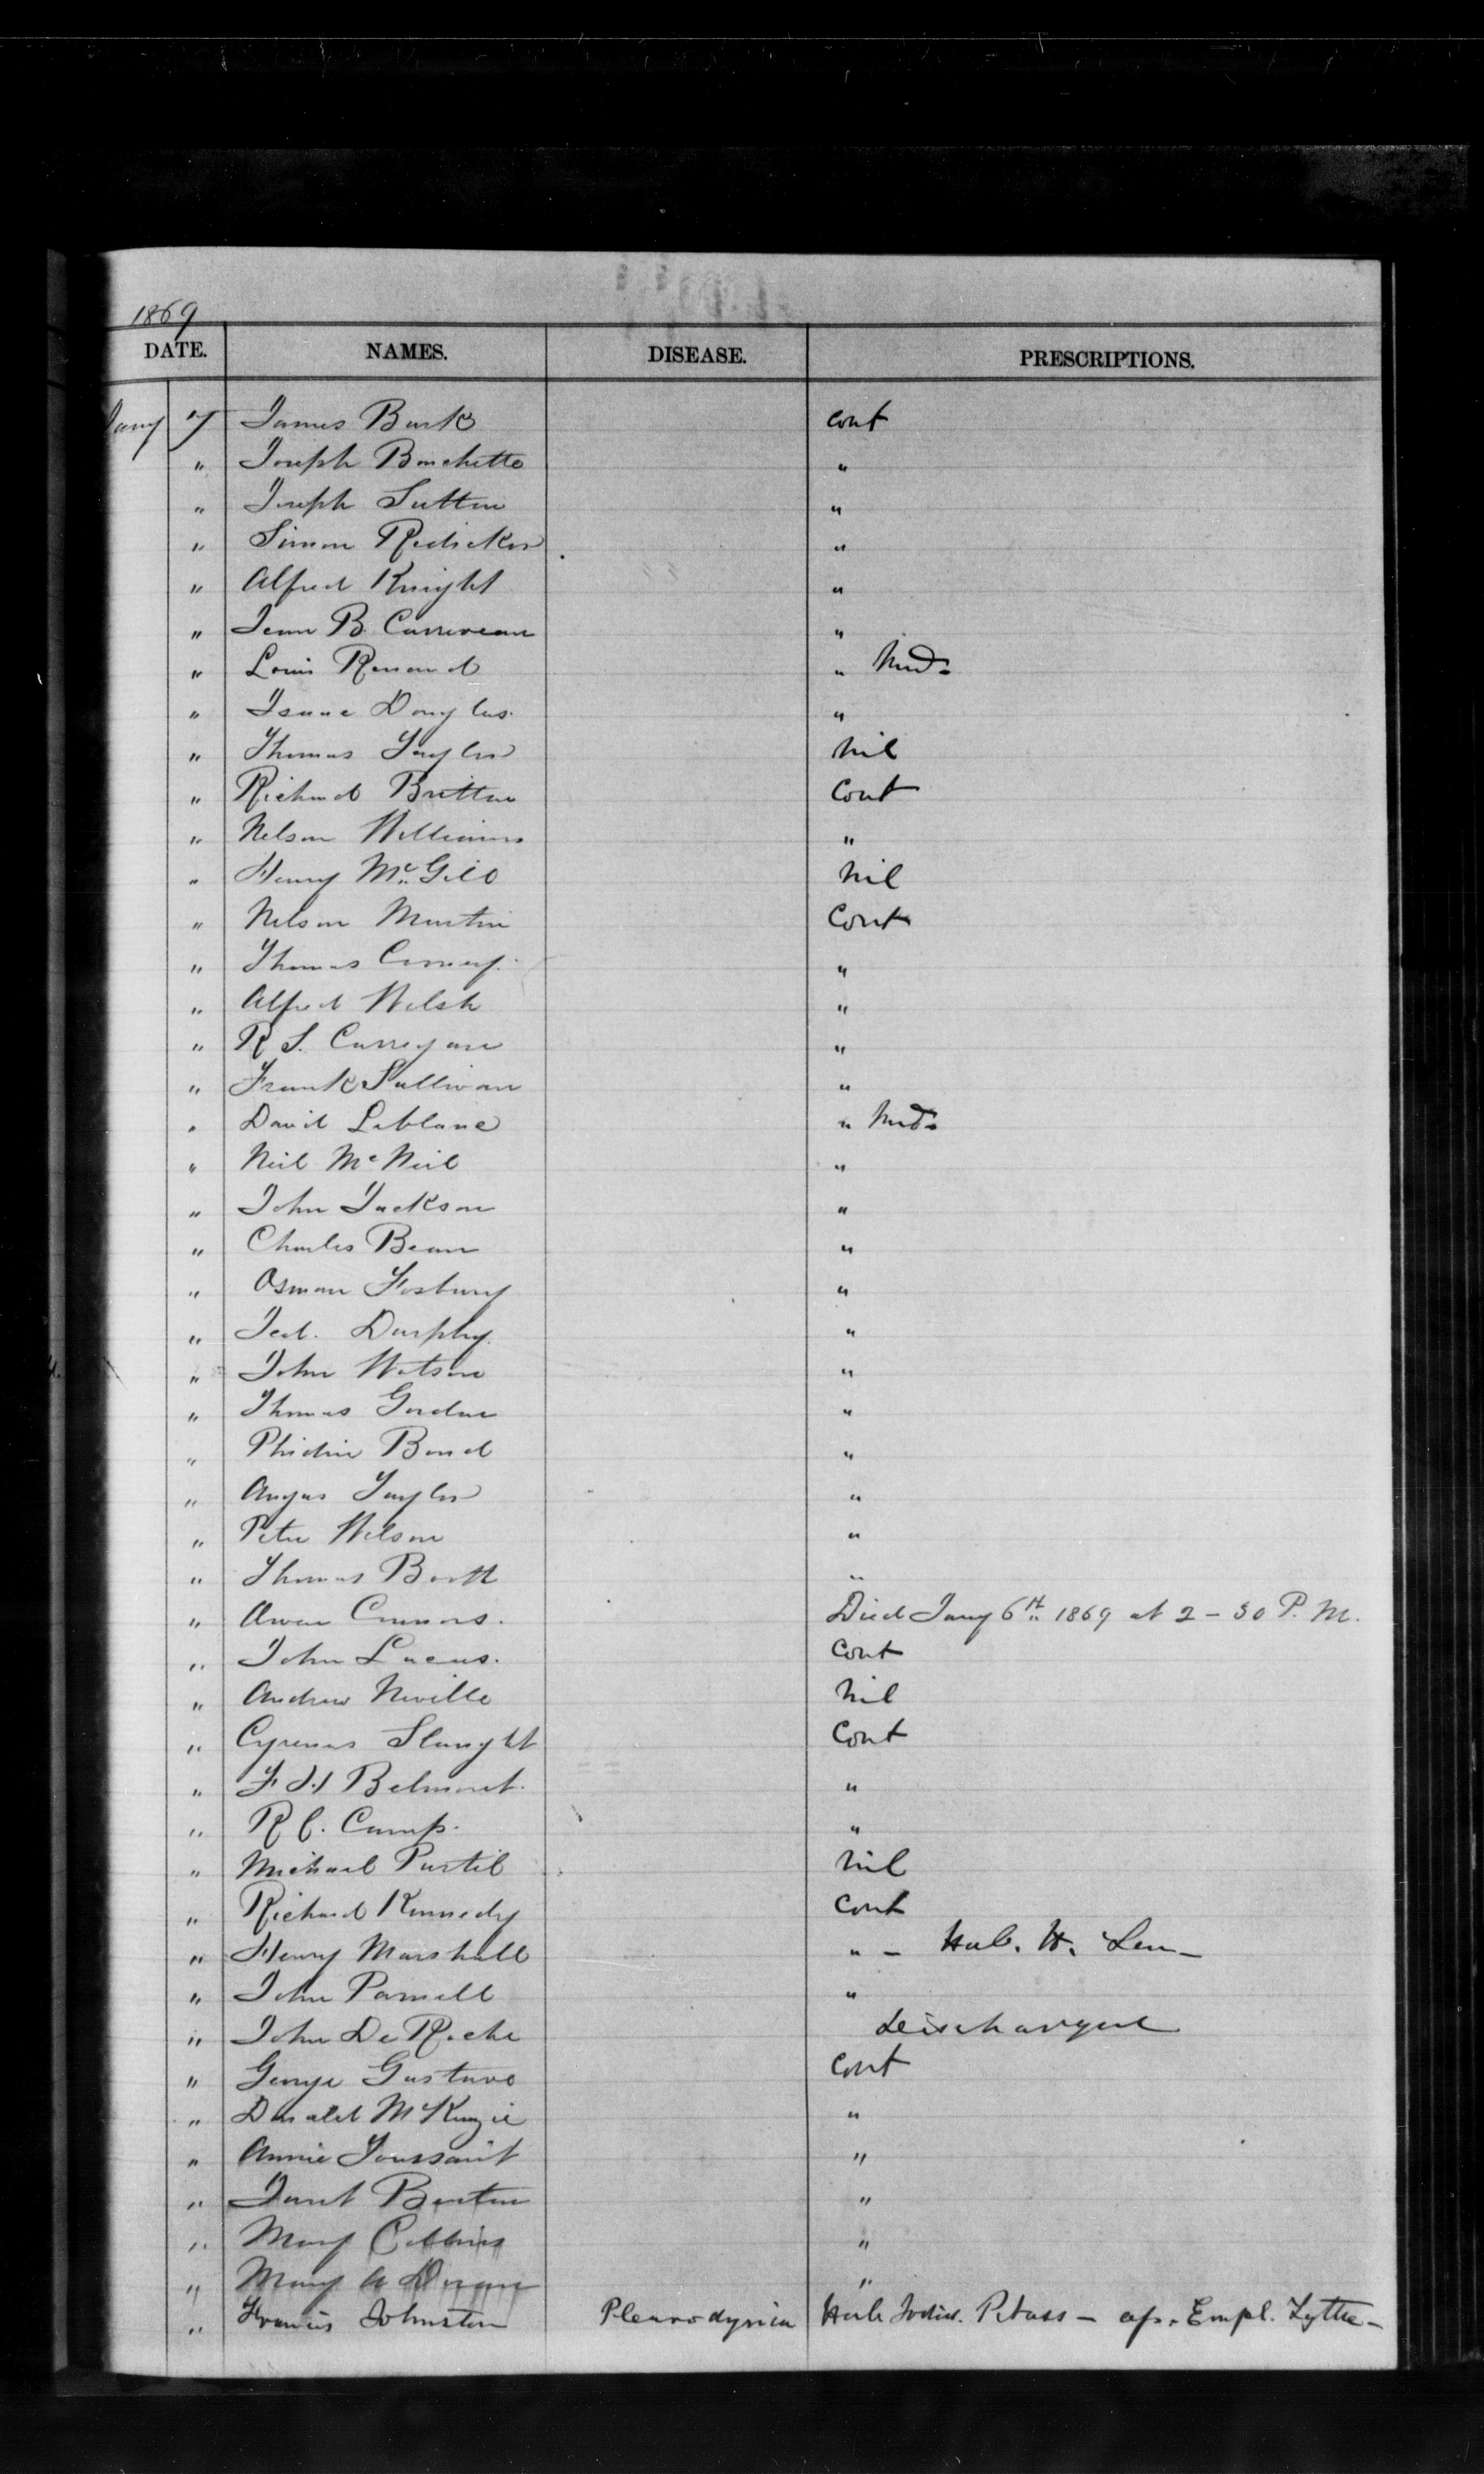 1869
DATE. NAMES. DISEASE. PRESCRIPTIONS.
Jany 7 James Burk cont
" Joseph Bouchette "
" Joseph Sutton "
" Simon "
" Alfred Knight "
" Jean B. Carriveau "
" Louis Renaud "
" Isaac Douglas. "
" Thomas Taylor Nil
" Richard Britton Cont
" Nelson Williams "
" Henry Mc Gill Nil
" Nelson Martin Cont
" Thomas "
" Alfred Welsh "
" R S. Corrigan "
" Frank Sullivan "
" David Leblanc "
" Neil Mc Neil "
" John Jackson "
" Charles Bean "
" Osman Fosbury "
" Jed. Durphy. "
" John Watson "
" Thomas Gordon "
" Bond "
" Angus Taylor "
" Peter Wilson "
" Thomas Booth "
" Owen Connors. Died Jany 6th 1869 at 2 - 30 P. M.
" John Lucas. Cont
" Andrew Neville Nil
" Cyrenus Slaught Cont
" Belmont. "
" R C. Camp. "
" Michael Purtil Nil
" Richard Kennedy Cont
" Henry Marshall " -
" John Parnell "
" John De Roche Discharged
" George Gustave Cont
" Donald McKenzie "
" Annie Toussaint "
" Janet Benton "
" Mary Collins "
" Mary A Doran "
" Francis Johnston Pleurodynia Hab Potass - ap. Empl. Lytta -